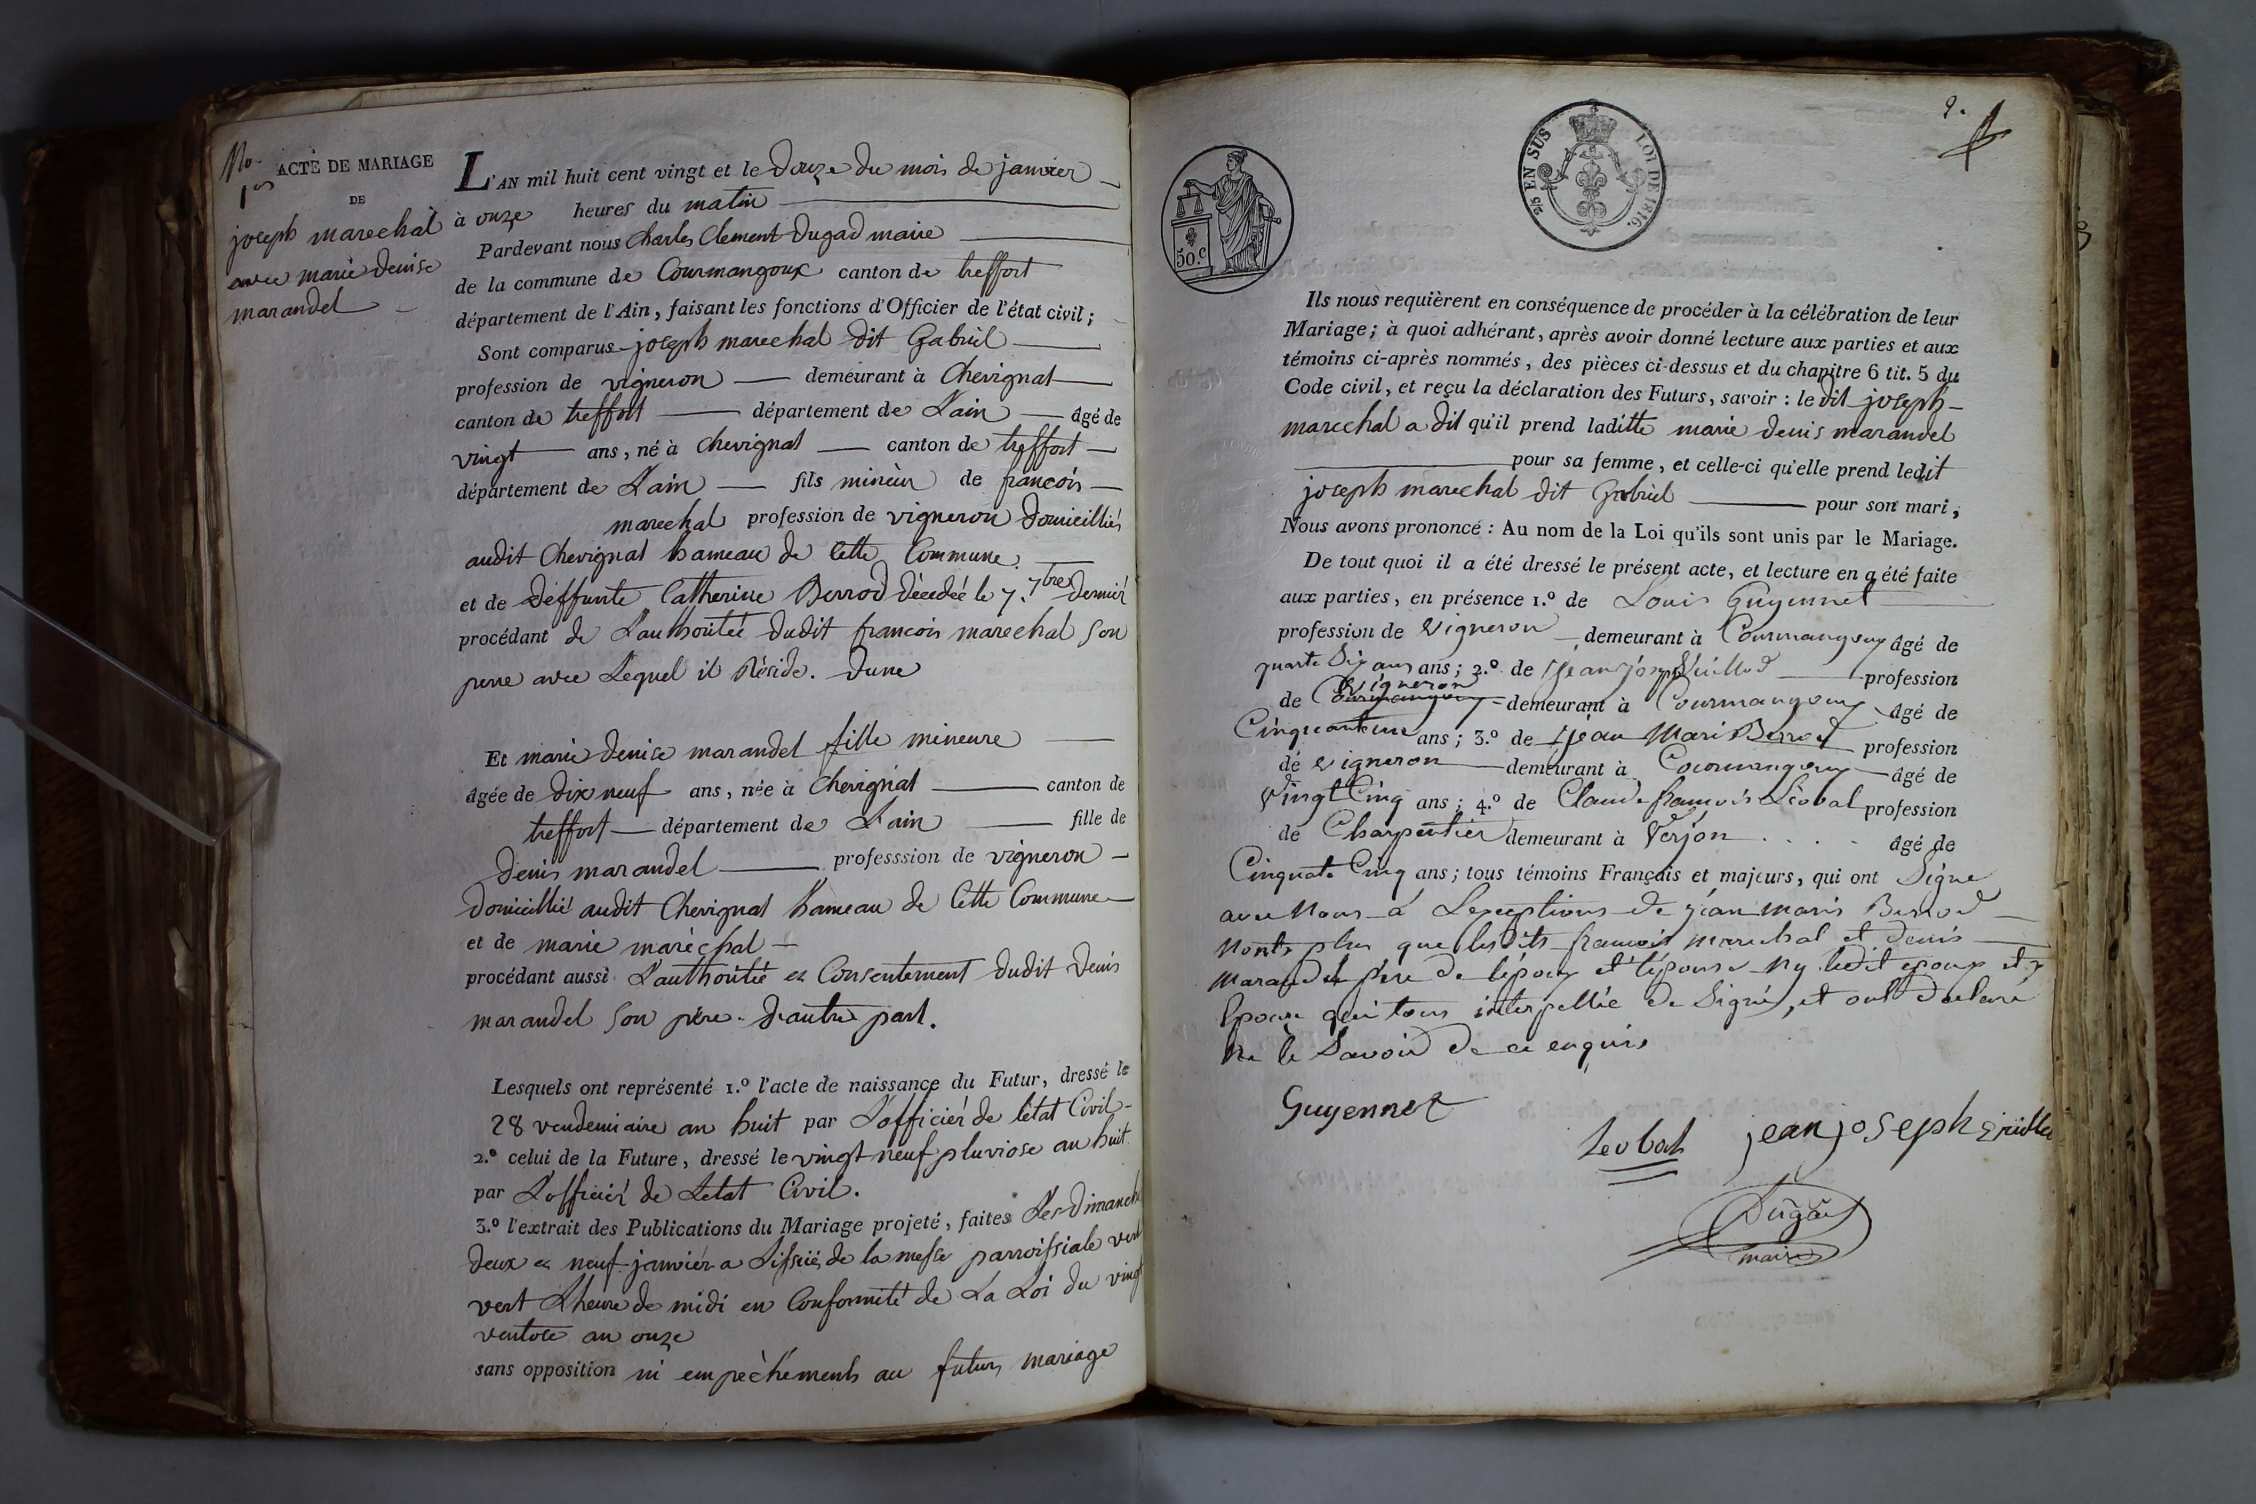 No. 1er
ACTE DE MARIAGE
DE
joseph marechal
avec marie denise
marandel
L'AN mil huit cent vingt et le douze du mois de janvier
à onze heures du matin
Pardevant nous Charles Clement Dugad maire
de la commune de Courmangoux canton de treffort
département de l'Ain, faisant les fonctions d'Officier de l'état civil;
Sont comparus joseph marechal dit Gabriel
profession de vigneron demeurant à Chevignat
canton de treffort département de L'ain âgé de
vingt ans, né à Chevignat canton de treffort
département de L'ain fils mineur de francois
marechal profession de vigneron domicilliés
audit Chevignat hameau de Cette Commune
et de deffunte Catherine Berrod décedée le 7. 7bre dernier
procédant de L'authoritée dudit francois marechal son
pere avec Lequel il Réside. d'une
Et marie denise marandel fille mineure
âgée de dix neuf ans, née à Chevignat canton de
treffort département de L'ain fille de
denis marandel professsion de vigneron
domicillié audit Chevignat hameau de Cette Commune
et de marie maréchal
procédant aussi L'authoritée et Consentement dudit denis
marandel son père. d'autre part.
Lesquels ont représenté 1.º l'acte de naissance du Futur, dressé le
28 vendemiaire an huit par L'officiér de l'état Civil
2.º celui de la Future, dressé le vingt neuf pluviose an huit
par L'officiér de L'etat Civil.
3.º l'extrait des Publications du Mariage projeté, faites Les Dimanche
deux et neuf janvier a L'issüe de la messe parroissiale vert
vert L'heure de midi en Conformité de La Loi du vingt
ventose an onze
sans opposition ni empèchements au futur mariage
2.
50.c
25 EN SUS
LOI DE 1816.
Ils nous requièrent en conséquence de procéder à la célébration de leur
Mariage; à quoi adhérant, après avoir donné lecture aux parties et aux
témoins ci-après nommés, des pièces ci-dessus et du chapitre 6 tit. 5 du
Code civil, et reçu la déclaration des Futurs, savoir: le dit joseph
marechal a dit qu'il prend laditte marie denis marandel
pour sa femme, et celle-ci qu'elle prend ledit
joseph marechal dit Gabriel pour son mari,
Nous avons prononcé: Au nom de la Loi qu'ils sont unis par le Mariage.
De tout quoi il a été dressé le présent acte, et lecture en a été faite
aux parties, en présence 1.º de Louis Guyennet
profession de vigneron demeurant à Courmangoux âgé de
quarte Six ans ans; 2.º de jean joseph profession
de Courmangoux vigneron demeurant à Courmangoux âgé de
Cinquante ans; 3.º de jean Mari Berrod profession
de vigneron demeurant à Courmangoux âgé de
Vingt Cinq ans; 4.º de Claude francois Léobal profession
de Charpentier demeurant à Verjon âgé de
Cinquate Cinq ans; tous témoins Français et majeurs, qui ont Signe
avec Nous à Lexceptions de jéan maris Berrod
Nonts plus que lesdits francois marechal et denis
marandel père de l'époux et l'épouse ny ledit epoux et
Epouse qui tous interpellée de Signé, et ont declaré
ne le Savoir de ce enquis
Guyennet
Leobal
jean joseph
Dugad
maire